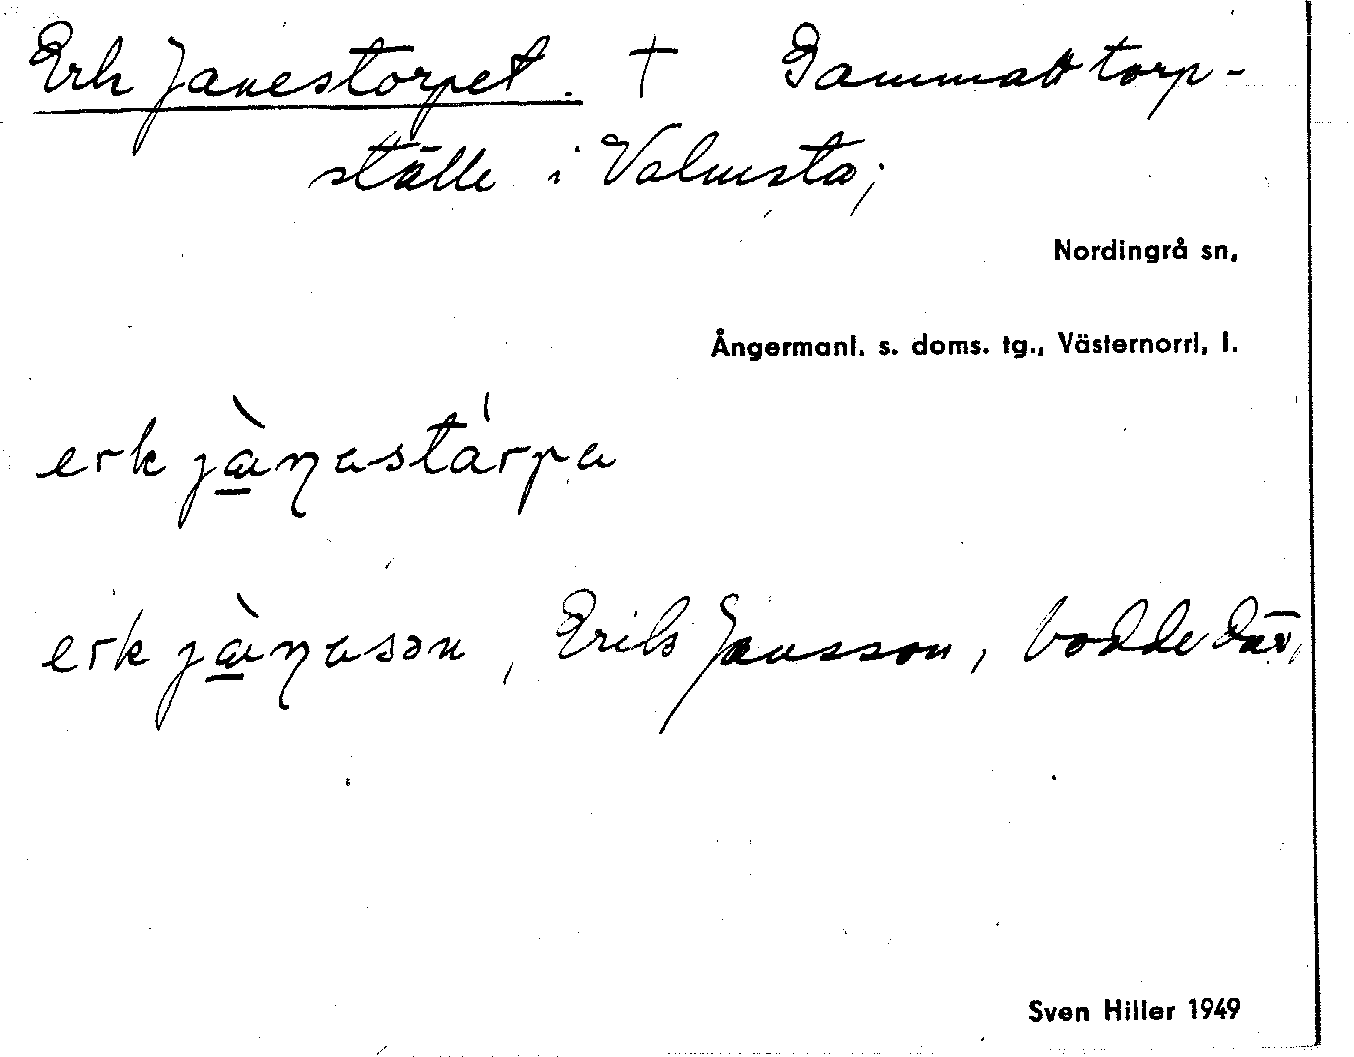 Erk Janestorpet. † Gammalt torp-
ställe i Valmsta;
Nordingrå sn,
Ångermanl. s. doms. tg., Västernorrl, l.
erk jàŋastárpa
erk jàŋasɔn, Erik Jansson, bodde där,
Sven Hiller 1949